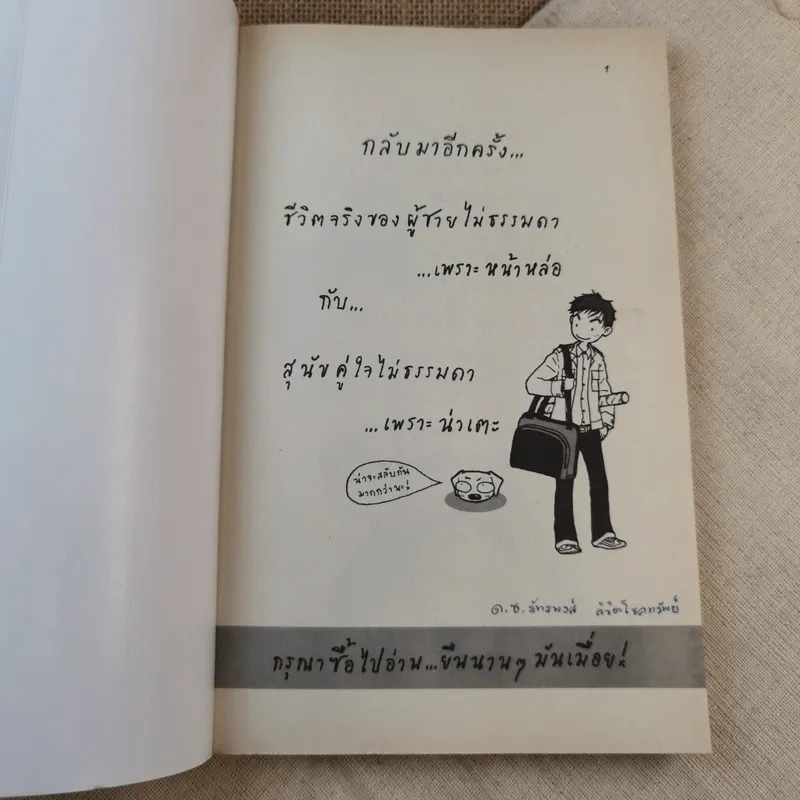 1
กลับมาอีกครั้ง...
ชีวิตจริงของผู้ชายไม่ธรรมดา
...เพราะหน้าหล่อ
กับ...
สุนัขคู่ใจไม่ธรรมดา
...เพราะน่าเตะ
น่าจะสลับกัน
มากกว่านะ!
ด.ช.
กรุณาซื้อไปอ่าน...ยืนนานๆ มันเมื่อย!